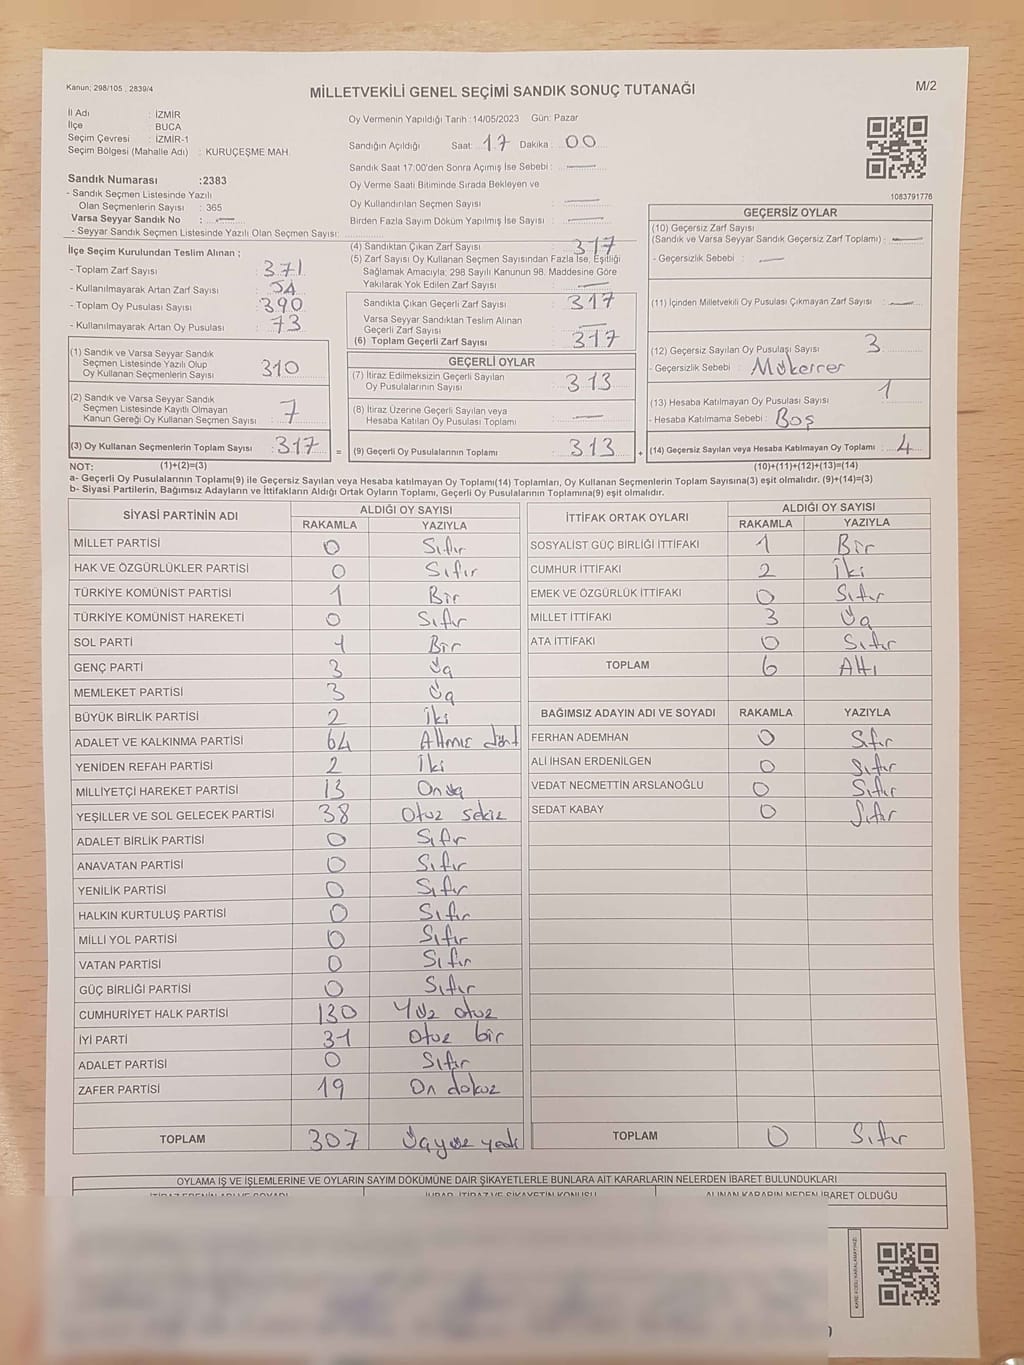 Kanun; 298/105 , 2839/4
MİLLETVEKİLİ GENEL SEÇİMİ SANDIK SONUÇ TUTANAĞI
M/2
İl Adı : İZMİR
İlçe BUCA
Seçim Çevresi : İZMİR-1
Seçim Bölgesi (Mahalle Adı) : KURUÇEŞME MAH.
Oy Vermenin Yapıldığı Tarih :14/05/2023 Gün: Pazar
Sandığın Açıldığı Saat: 17 Dakika : 00
Sandık Saat 17:00'den Sonra Açımış İse Sebebi : —
Oy Verme Saati Bitiminde Sırada Bekleyen ve
Oy Kullandırılan Seçmen Sayısı : —
Birden Fazla Sayım Döküm Yapılmış İse Sayısı : —
1083791776
Sandık Numarası :2383
- Sandık Seçmen Listesinde Yazılı
Olan Seçmenlerin Sayısı : 365
Varsa Seyyar Sandık No : —
- Seyyar Sandık Seçmen Listesinde Yazılı Olan Seçmen Sayısı:
İlçe Seçim Kurulundan Teslim Alınan ;
- Toplam Zarf Sayısı : 371
- Kullanılmayarak Artan Zarf Sayısı : 54
- Toplam Oy Pusulası Sayısı : 390
- Kullanılmayarak Artan Oy Pusulası : 73
(1) Sandık ve Varsa Seyyar Sandık
Seçmen Listesinde Yazılı Olup
Oy Kullanan Seçmenlerin Sayısı : 310
(2) Sandık ve Varsa Seyyar Sandık
Seçmen Listesinde Kayıtlı Olmayan
Kanun Gereği Oy Kullanan Seçmen Sayısı : 7
(3) Oy Kullanan Seçmenlerin Toplam Sayısı : 317
(4) Sandıktan Çıkan Zarf Sayısı : 317
(5) Zarf Sayısı Oy Kullanan Seçmen Sayısından Fazla İse, Eşitliği
Sağlamak Amacıyla; 298 Sayılı Kanunun 98. Maddesine Göre
Yakılarak Yok Edilen Zarf Sayısı : —
Sandıkta Çıkan Geçerli Zarf Sayısı : 317
Varsa Seyyar Sandıktan Teslim Alınan
Geçerli Zarf Sayısı : —
(6) Toplam Geçerli Zarf Sayısı : 317
GEÇERLİ OYLAR
(7) İtiraz Edilmeksizin Geçerli Sayılan
Oy Pusulalarının Sayısı : 313
(8) İtiraz Üzerine Geçerli Sayılan veya
Hesaba Katılan Oy Pusulası Toplamı : —
= (9) Geçerli Oy Pusulalarının Toplamı : 313
GEÇERSİZ OYLAR
(10) Geçersiz Zarf Sayısı
(Sandık ve Varsa Seyyar Sandık Geçersiz Zarf Toplamı) : —
- Geçersizlik Sebebi : —
(11) İçinden Milletvekili Oy Pusulası Çıkmayan Zarf Sayısı : —
(12) Geçersiz Sayılan Oy Pusulası Sayısı : 3
- Geçersizlik Sebebi : Mükerrer
(13) Hesaba Katılmayan Oy Pusulası Sayısı : 1
- Hesaba Katılmama Sebebi : Boş
+ (14) Geçersiz Sayılan veya Hesaba Katılmayan Oy Toplamı : 4
NOT: (1)+(2)=(3)
(10)+(11)+(12)+(13)=(14)
a- Geçerli Oy Pusulalarının Toplamı(9) ile Geçersiz Sayılan veya Hesaba katılmayan Oy Toplamı(14) Toplamları, Oy Kullanan Seçmenlerin Toplam Sayısına(3) eşit olmalıdır. (9)+(14)=(3)
b- Siyasi Partilerin, Bağımsız Adayların ve İttifakların Aldığı Ortak Oyların Toplamı, Geçerli Oy Pusulalarının Toplamına(9) eşit olmalıdır.
SİYASİ PARTİNİN ADI ALDIĞI OY SAYISI
RAKAMLA YAZIYLA
MİLLET PARTİSİ 0 Sıfır
HAK VE ÖZGÜRLÜKLER PARTİSİ 0 Sıfır
TÜRKİYE KOMÜNİST PARTİSİ 1 Bir
TÜRKİYE KOMÜNİST HAREKETİ 0 Sıfır
SOL PARTİ 1 Bir
GENÇ PARTİ 3 Üç
MEMLEKET PARTİSİ 3 Üç
BÜYÜK BİRLİK PARTİSİ 2 İki
ADALET VE KALKINMA PARTİSİ 64 Altmış dört
YENİDEN REFAH PARTİSİ 2 İki
MİLLİYETÇİ HAREKET PARTİSİ 13 Onüç
YEŞİLLER VE SOL GELECEK PARTİSİ 38 Otuz sekiz
ADALET BİRLİK PARTİSİ 0 Sıfır
ANAVATAN PARTİSİ 0 Sıfır
YENİLİK PARTİSİ 0 Sıfır
HALKIN KURTULUŞ PARTİSİ 0 Sıfır
MİLLİ YOL PARTİSİ 0 Sıfır
VATAN PARTİSİ 0 Sıfır
GÜÇ BİRLİĞİ PARTİSİ 0 Sıfır
CUMHURİYET HALK PARTİSİ 130 Yüz otuz
İYİ PARTİ 31 Otuz bir
ADALET PARTİSİ 0 Sıfır
ZAFER PARTİSİ 19 On dokuz
TOPLAM 307 Üçyüz yedi
İTTİFAK ORTAK OYLARI ALDIĞI OY SAYISI
RAKAMLA YAZIYLA
SOSYALİST GÜÇ BİRLİĞİ İTTİFAKI 1 Bir
CUMHUR İTTİFAKI 2 İki
EMEK VE ÖZGÜRLÜK İTTİFAKI 0 Sıfır
MİLLET İTTİFAKI 3 Üç
ATA İTTİFAKI 0 Sıfır
TOPLAM 6 Altı
BAĞIMSIZ ADAYIN ADI VE SOYADI RAKAMLA YAZIYLA
FERHAN ADEMHAN 0 Sıfır
ALİ İHSAN ERDENİLGEN 0 Sıfır
VEDAT NECMETTİN ARSLANOĞLU 0 Sıfır
SEDAT KABAY 0 Sıfır
TOPLAM 0 Sıfır
OYLAMA İŞ VE İŞLEMLERİNE VE OYLARIN SAYIM DÖKÜMÜNE DAİR ŞİKAYETLERLE BUNLARA AİT KARARLARIN NELERDEN İBARET BULUNDUKLARI
ALINAN KARARIN NEDEN İBARET OLDUĞU
KARE KODU KARALAMAYINIZ!